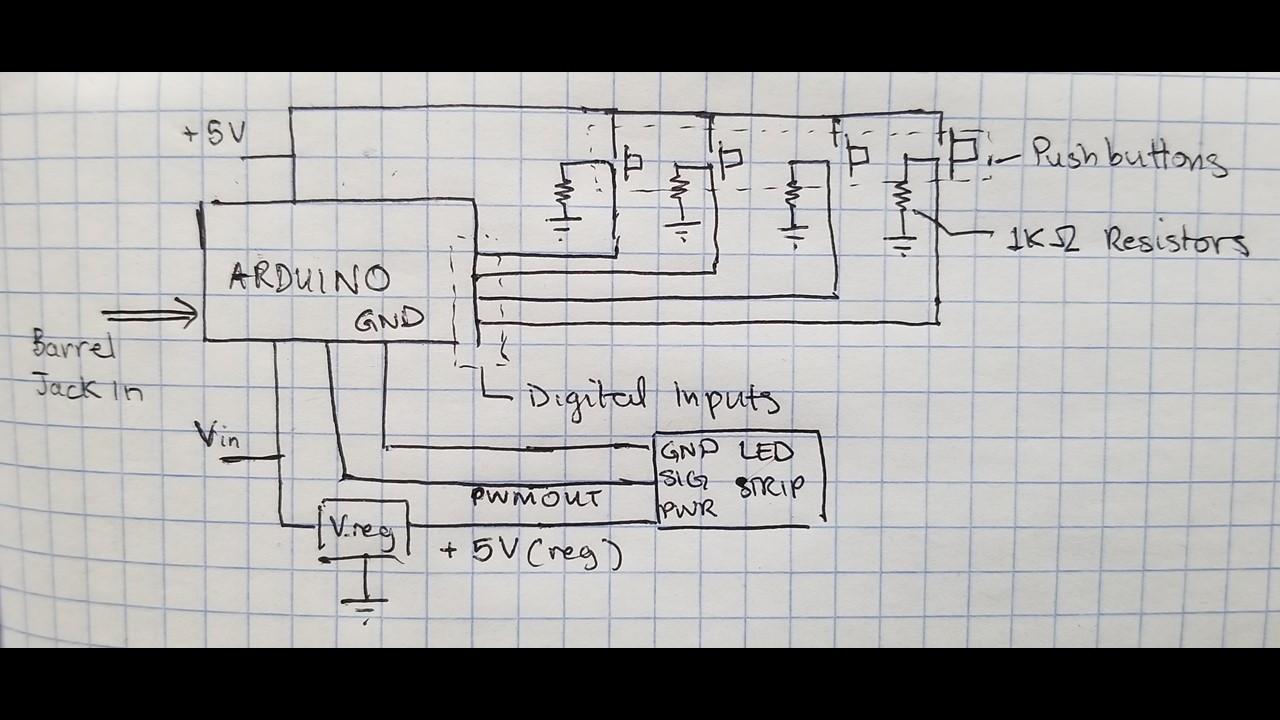 +5V
Pushbuttons
1KΩ Resistors
ARDUINO
GND
Barrel
Jack In
Digital Inputs
Vin
GND LED
SIG STRIP
PWR
PWMOUT
V.reg
+5V(reg)